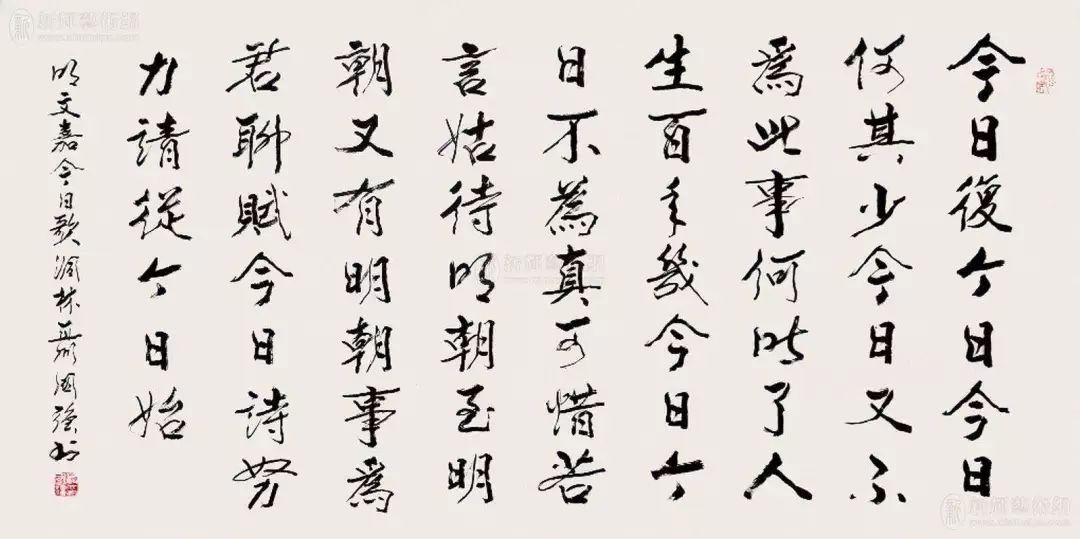 今日復今日今日
何其少今日又不
爲此事何时了人
生百年幾今日今
日不為真可惜若
言姑待明朝至明
朝又有明朝事爲
君聊賦今日詩努
力請從今日始
明文嘉今日歌 林 强书